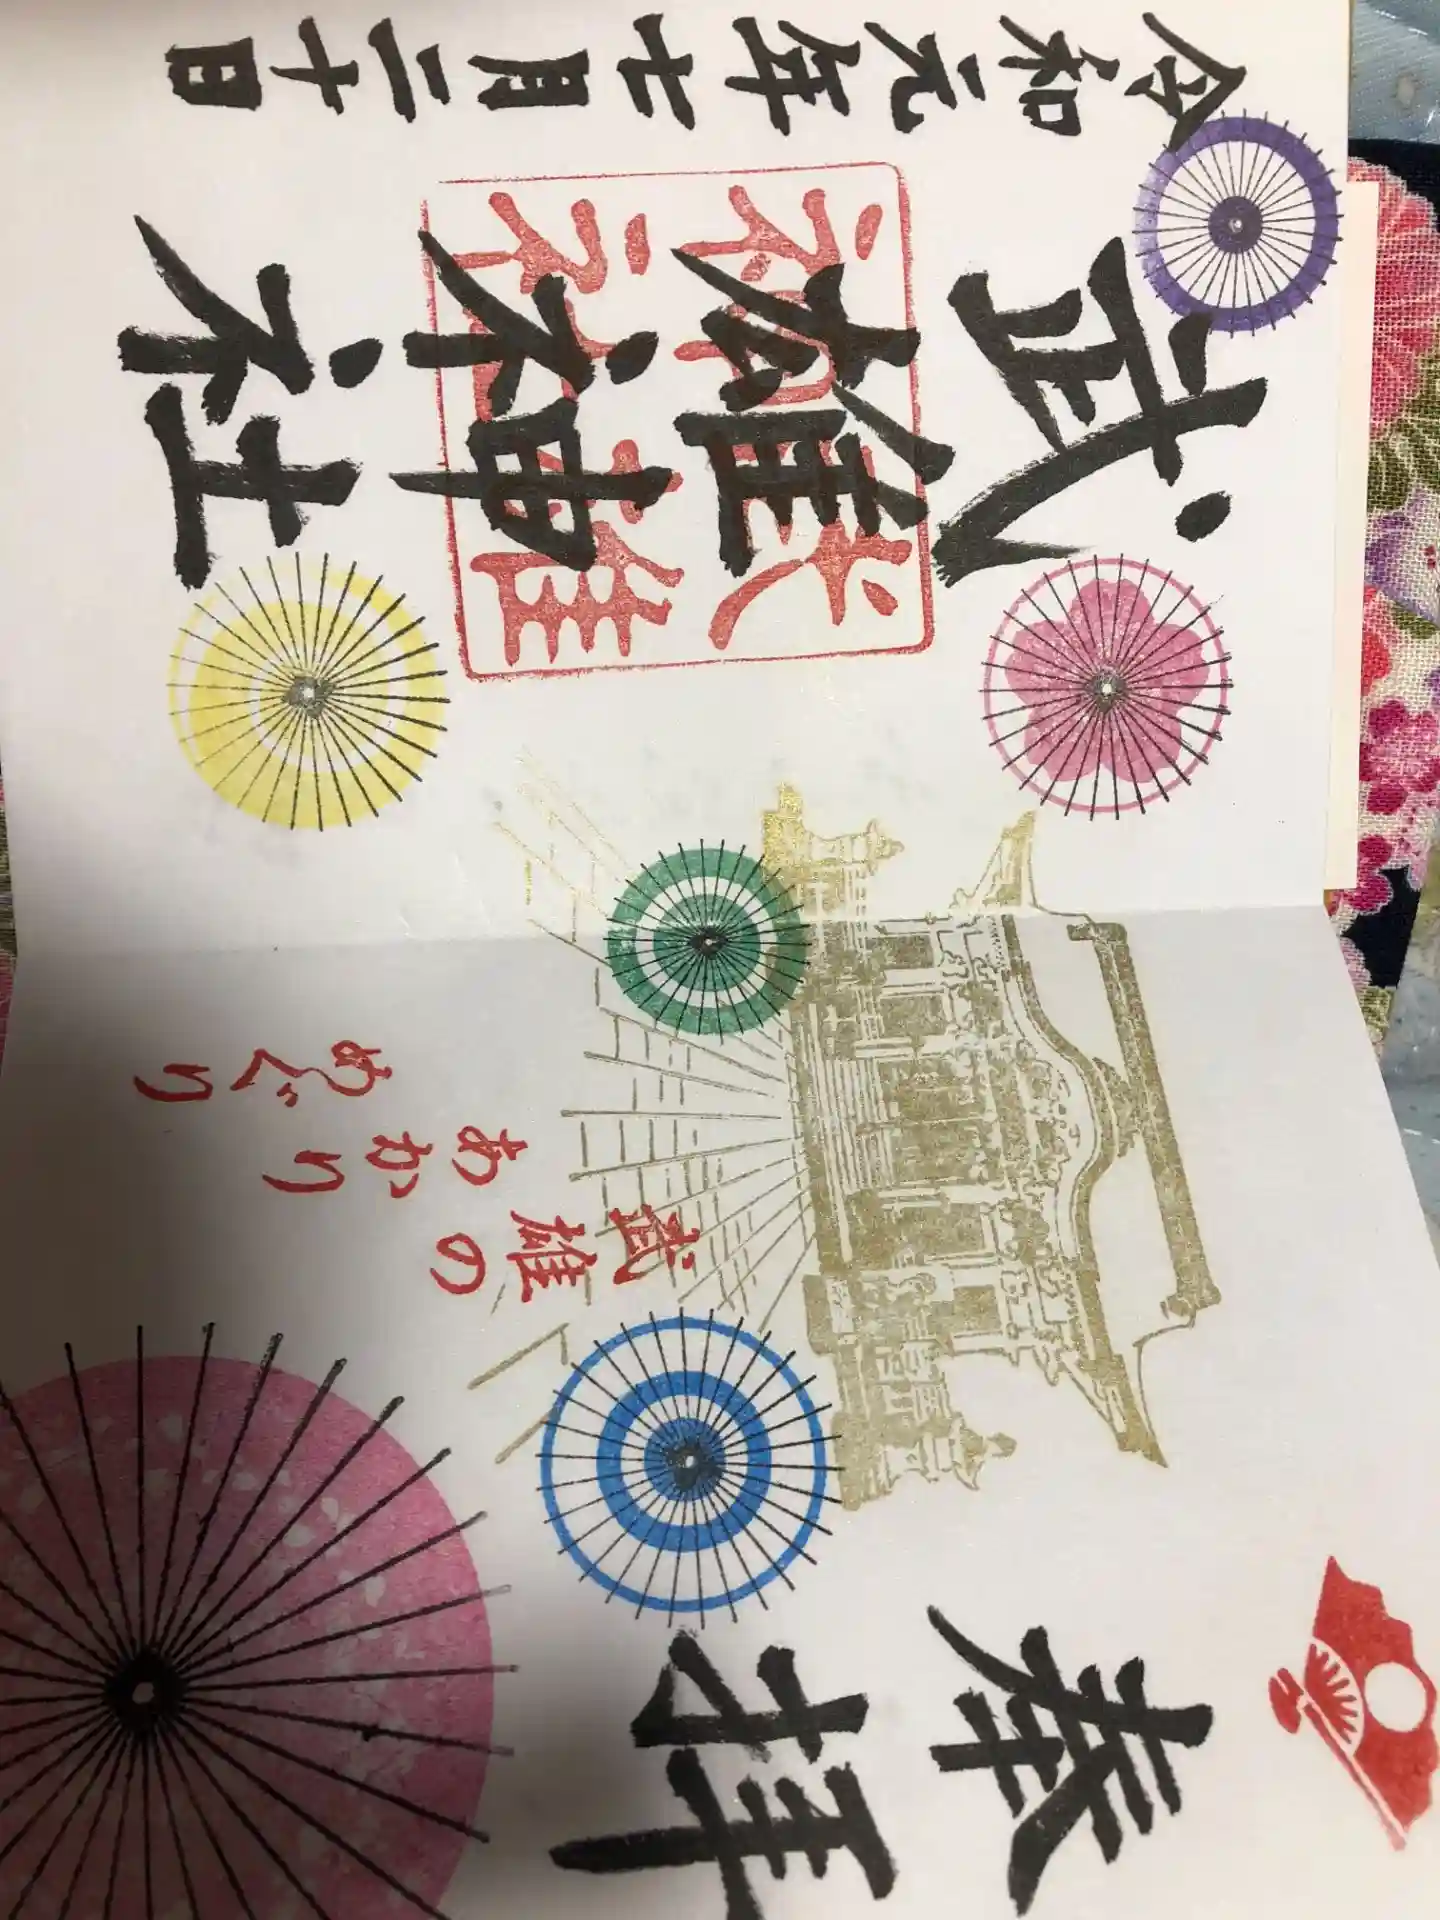 奉拝
武雄の
あかり
めぐり
武雄神社
武雄
神社
令和元年七月二十日